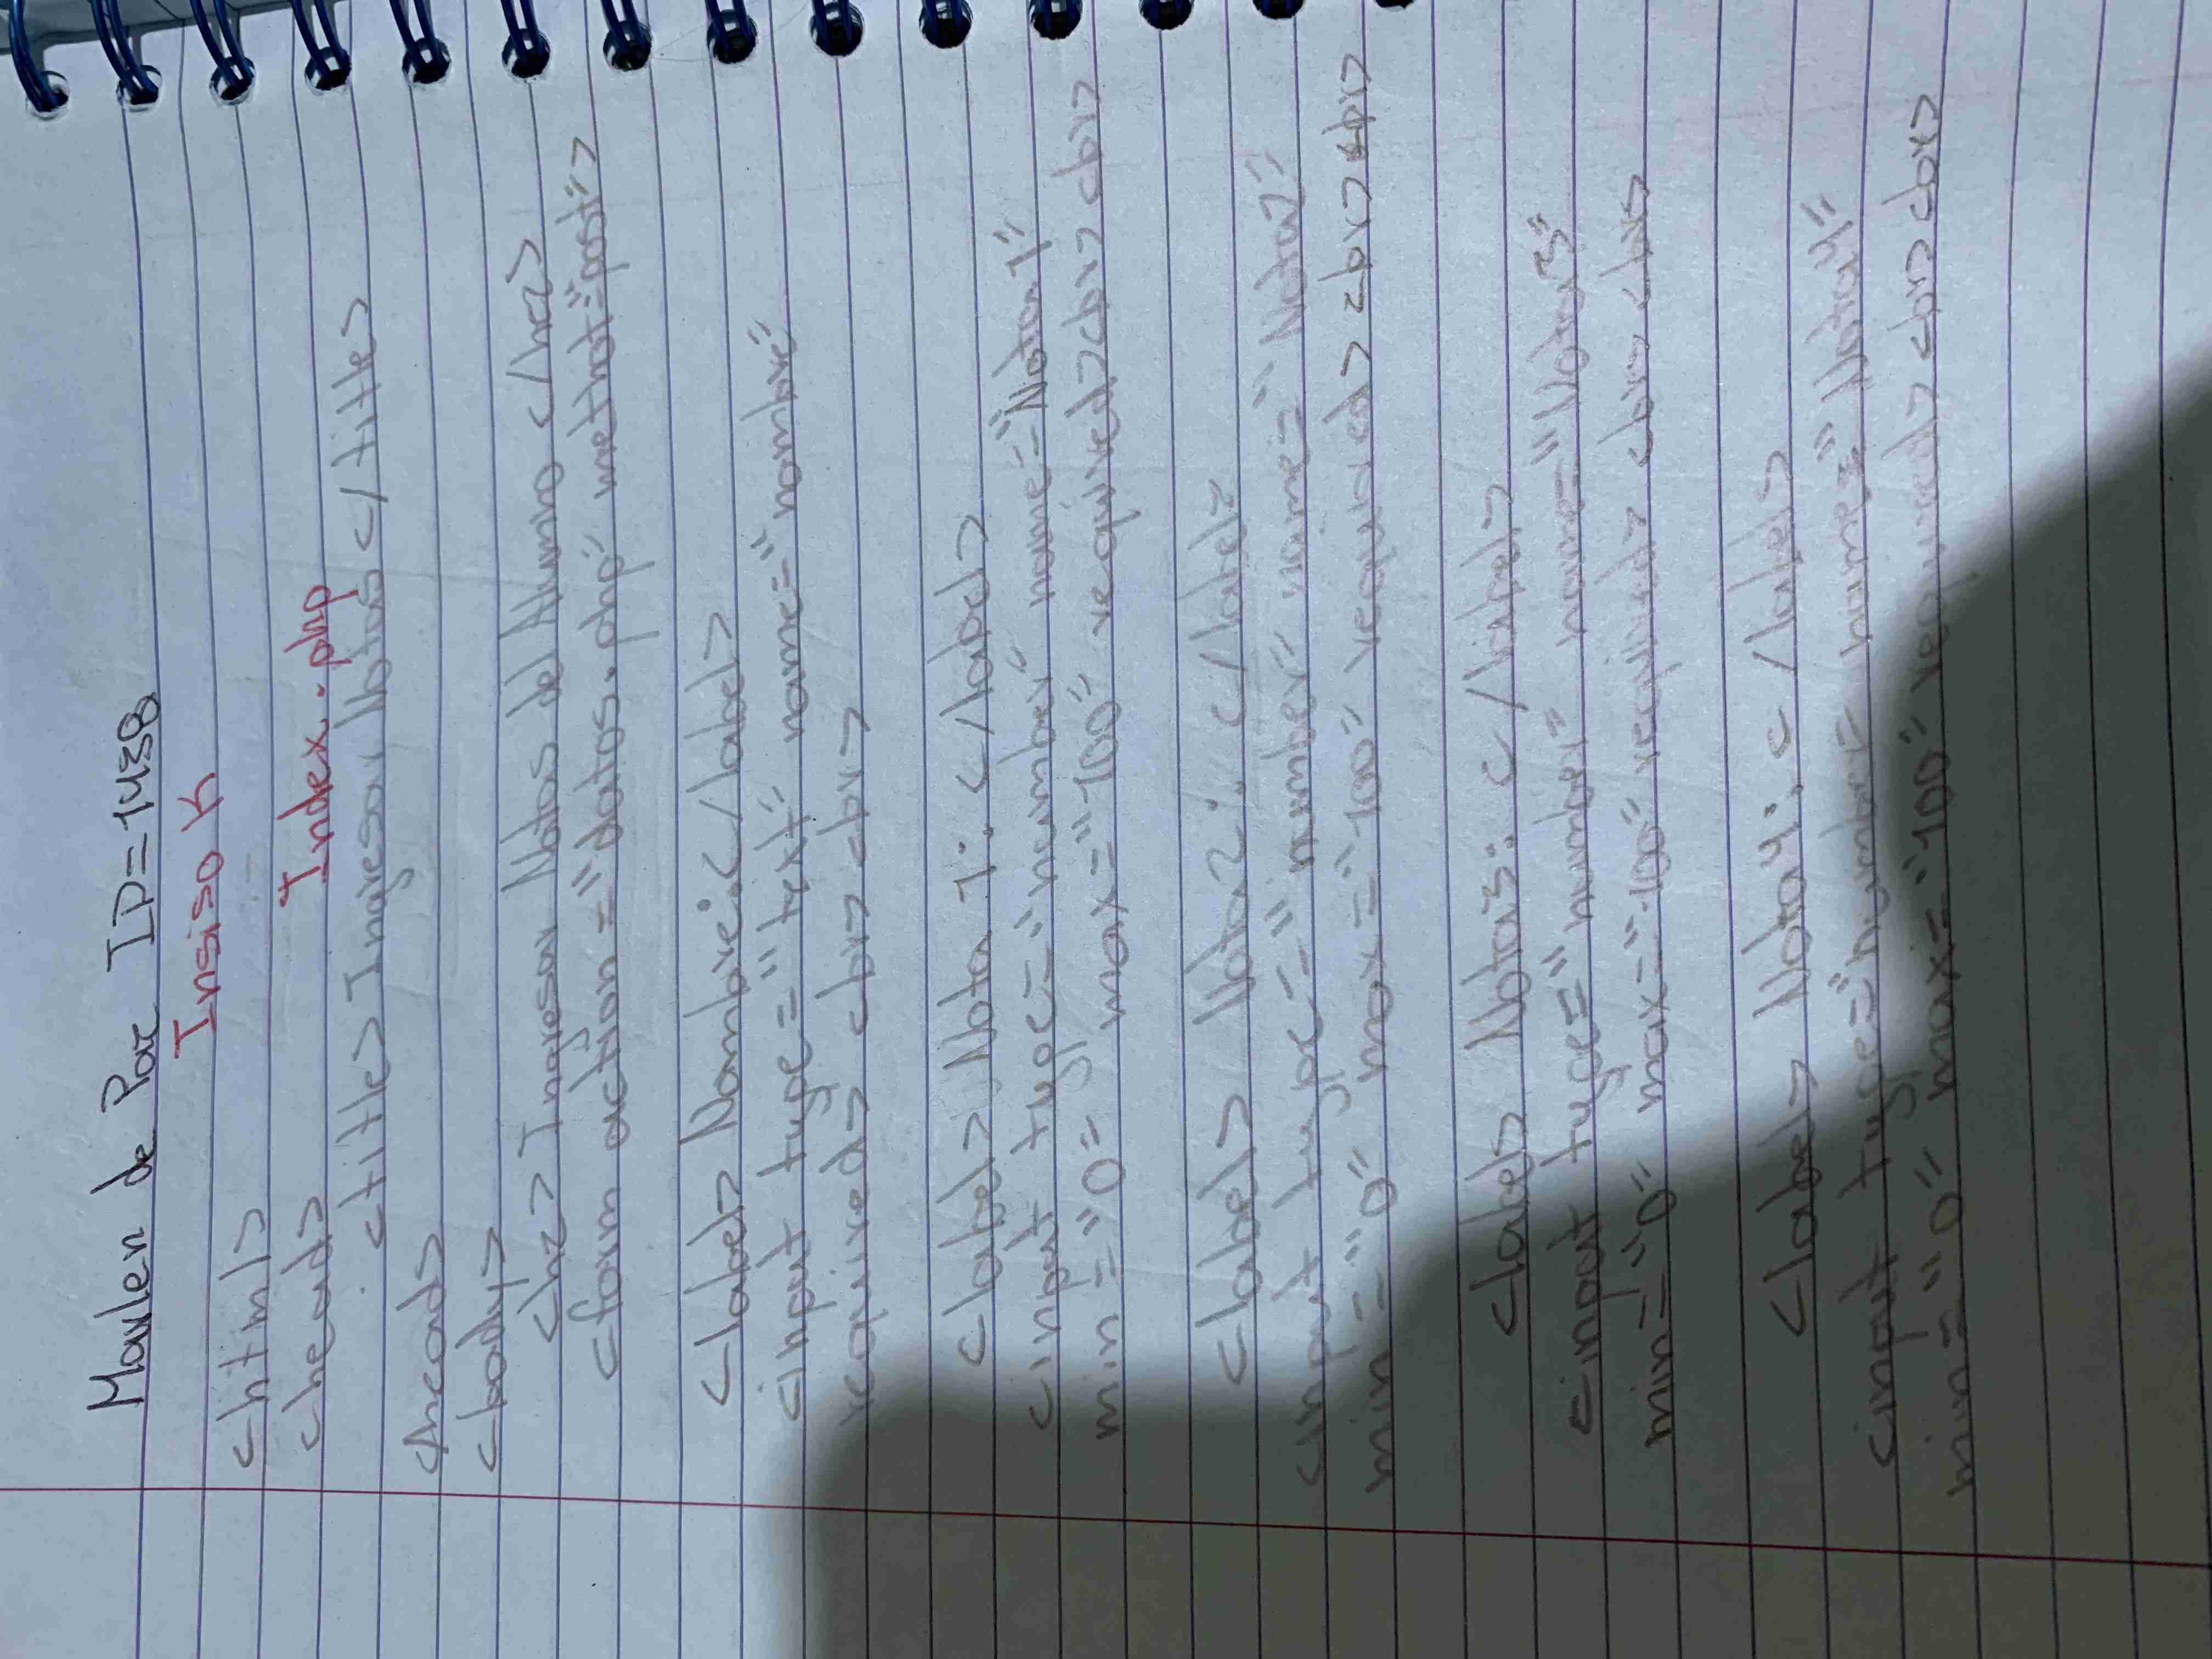 Marlen de Paz ID=1438
Inciso K
<html>
Index.php
<head>
<title> Ingresar Notas </title>
</head>
<body>
<h2> Ingresar Notas del Alumno </h2>
<form action="datos.php" methot="post">
<label> Nombre: </label>
<input type="text" name="nombre"
required> <br> <br>
<label> Nota 1: </label>
<input type="number" name="Nota1"
min="0" max="100" required> <br> <br>
<label> Nota2: </label>
<input type="number" name="Nota2"
min="0" max="100" required> <br> <br>
<label> Nota3: </label>
<input type="number" name="Nota3"
min="0" max="100" required> <br> <br>
<label> Nota4: </label>
<input type="number" name="Nota4"
min="0" max="100" required> <br> <br>